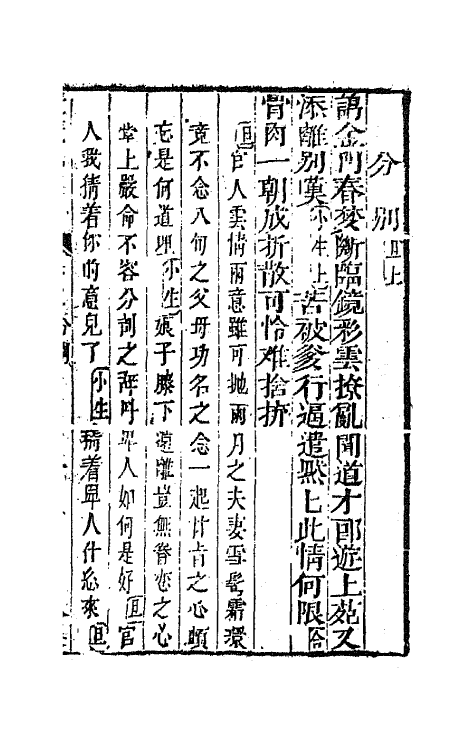 分別 旦上
謁金門春夢斷臨鏡彩雲撩亂聞道才郎遊上苑又
添離別嘆 小生上 苦被爹行逼遣默匕此情何限 合
骨肉一朝成折散可怜难捨拚
旦 官人雲情雨意雖可抛兩月之夫妻雪鬂霜鬟
竟不念八旬之父母功名之念一起甘旨之心頓
忘是何道理 小生 娘子膝下遠離豈無眷恋之心
堂上嚴命不容分剖之辞吽卑人如何是好 旦 官
人我猜着你的意兒了 小生 猜着卑人什忩來 旦